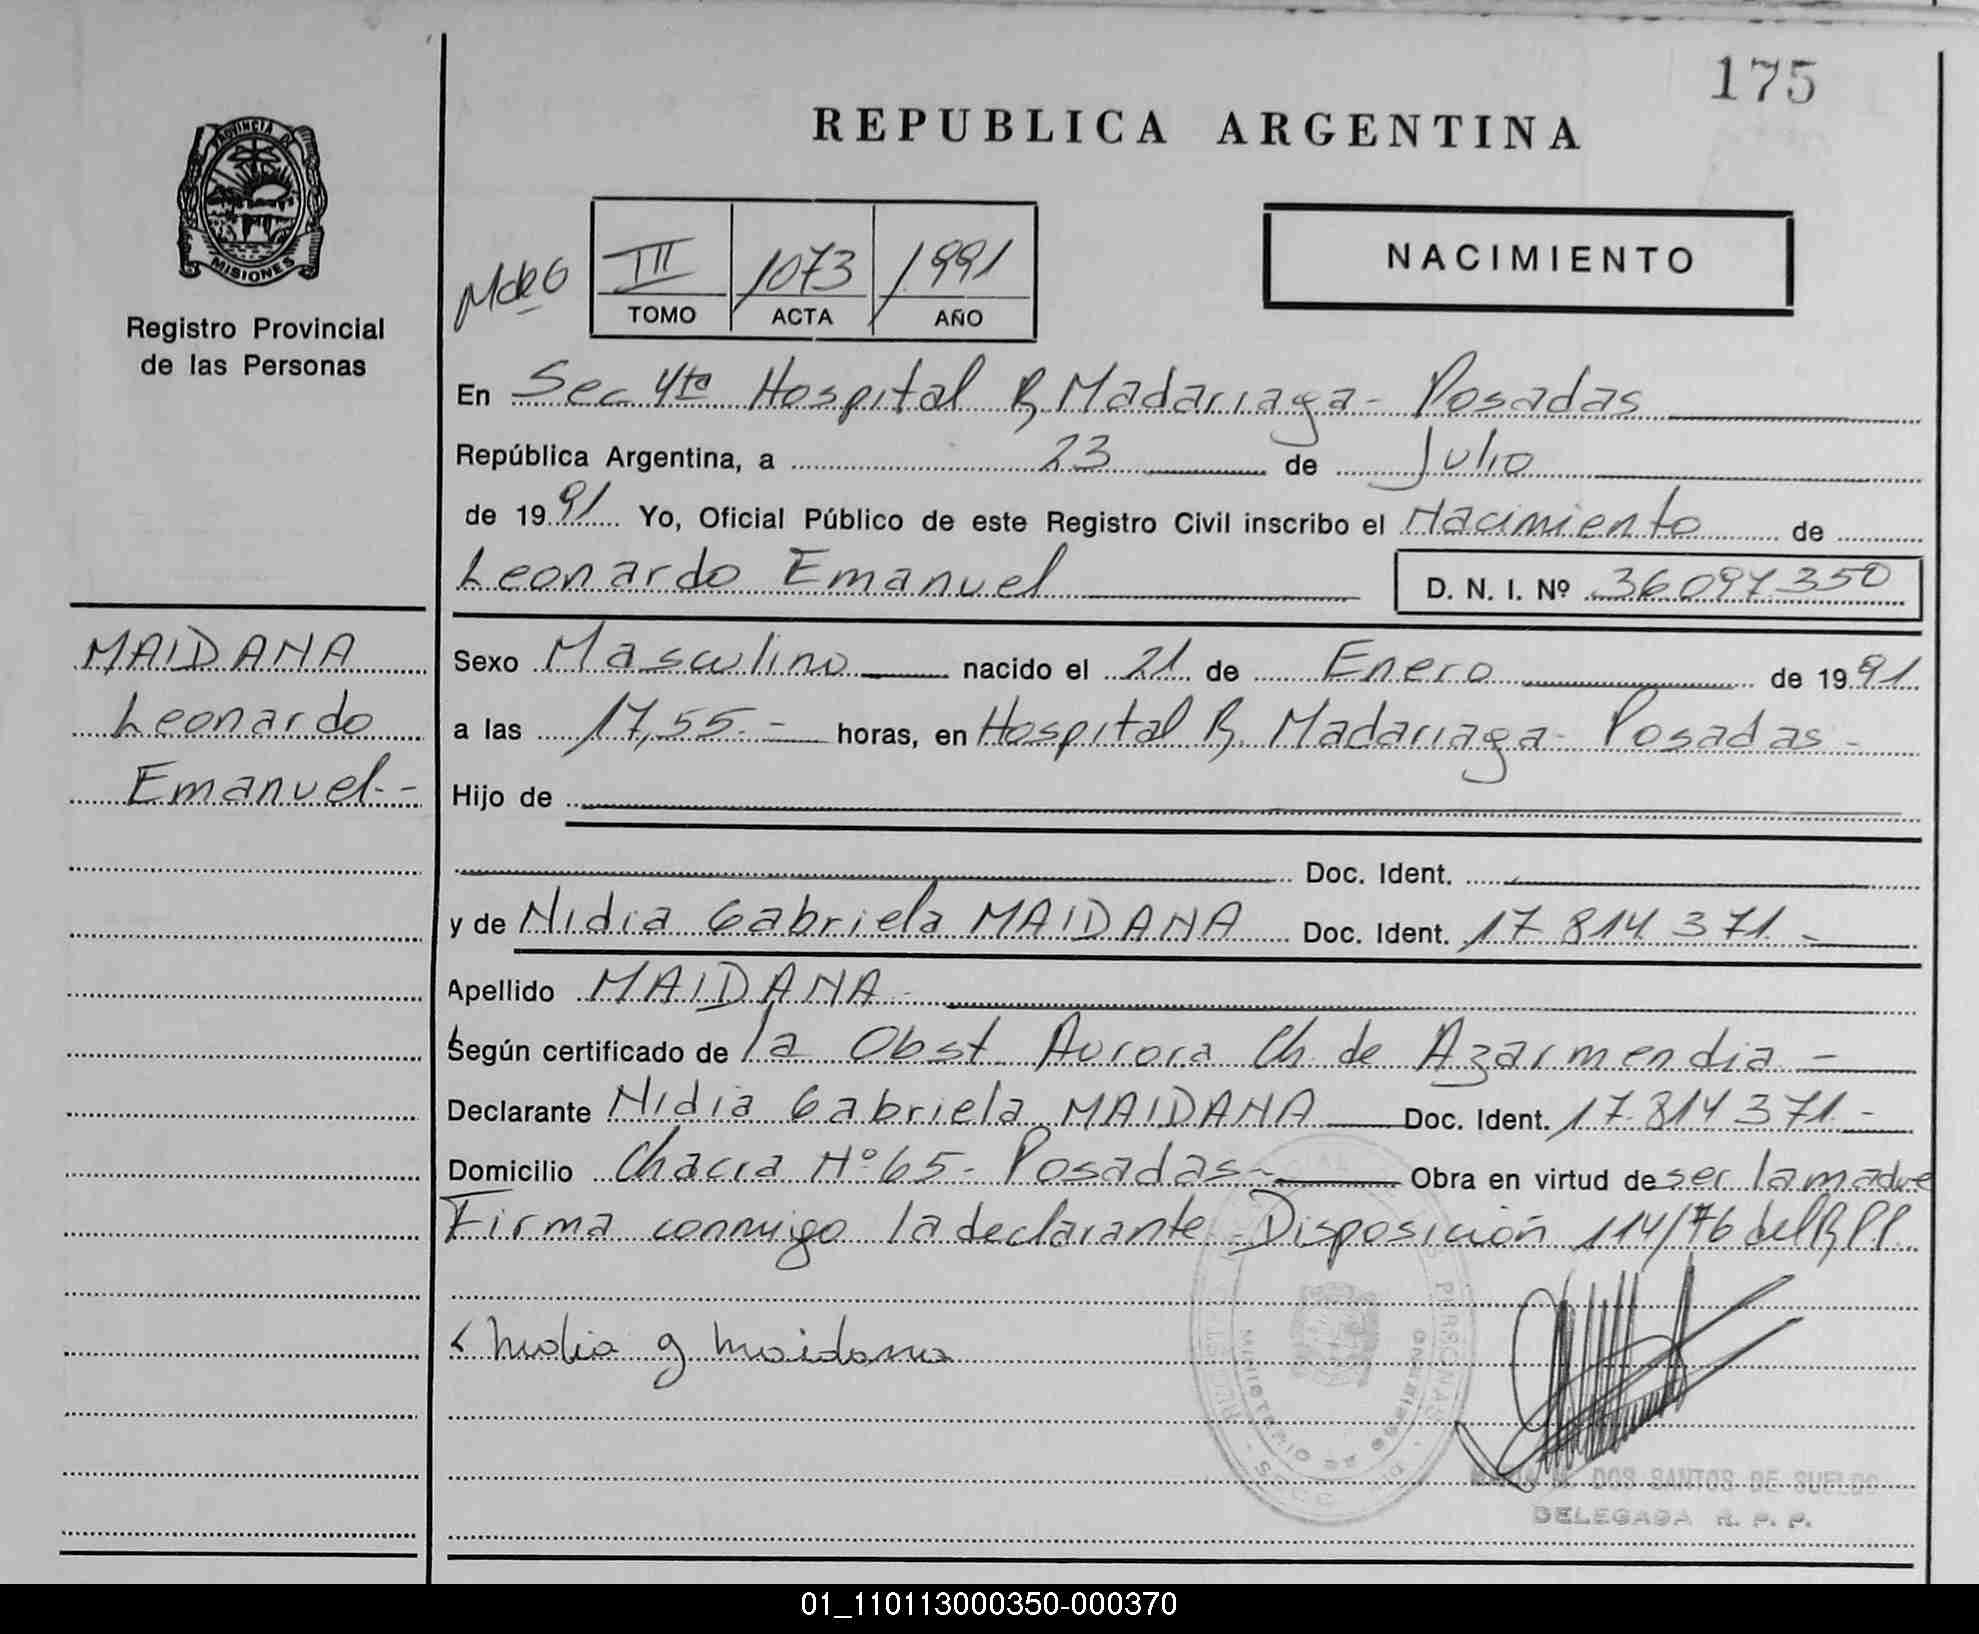 175
REPUBLICA ARGENTINA
PROVINCIA DE
MISIONES
Registro Provincial
de las Personas
NACIMIENTO
III 1073 1991
TOMO ACTA AÑO
En Sec 4ta Hospital R. Madariaga - Posadas
República Argentina, a 23 de Julio
de 1991 Yo, Oficial Público de este Registro Civil inscribo el Nacimiento de
Leonardo Emanuel D. N. I. Nº 36097350
MAIDANA
Leonardo
Emanuel.-
Sexo Masculino nacido el 21 de Enero de 1991
a las 17,55.- horas, en Hospital R. Madariaga - Posadas -
Hijo de
Doc. Ident.
y de Nidia Gabriela MAIDANA Doc. Ident. 17 814 371 -
Apellido MAIDANA -
Según certificado de la Obst Aurora Ch. de Azarmendia -
Declarante Nidia Gabriela MAIDANA Doc. Ident. 17.814 371.-
Domicilio Chacra Nº 65 - Posadas - Obra en virtud de ser la madre
Firma conmigo la declarante Disposición 114/76 del R P P.
Nidia g maidana
DOS SANTOS DE SUELDO
DELEGADA R. P. P.
01_110113000350-000370